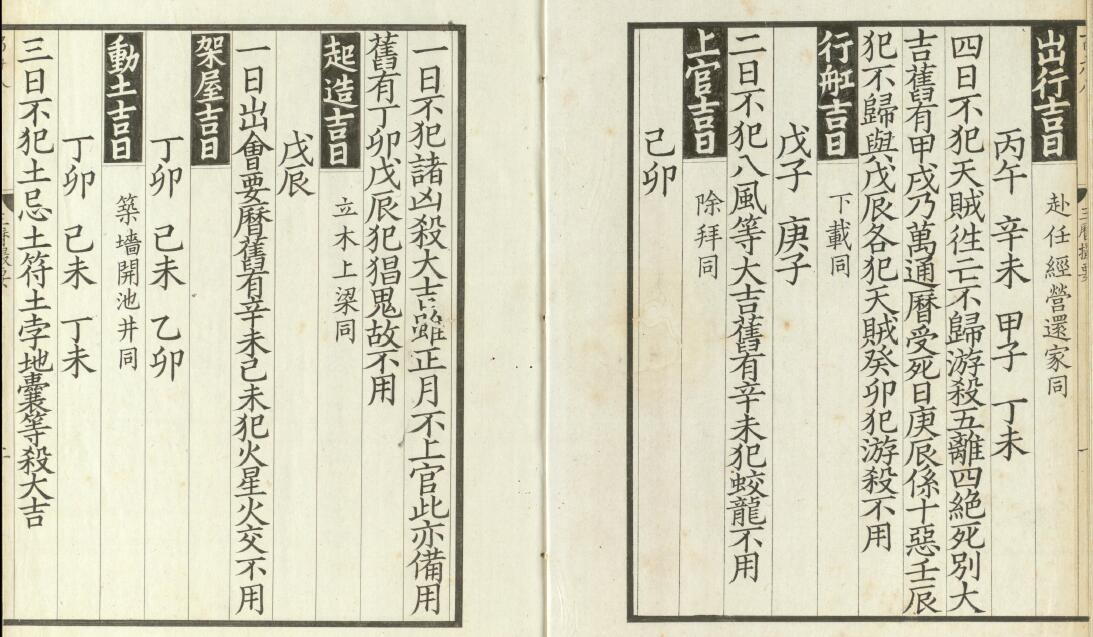 出行吉日 赴任經營還家同
丙午 辛未 甲子 丁未
四日不犯天賊徃亡不歸游殺五離四絕死別大
吉舊有甲戌乃萬通曆受死日庚辰係十惡壬辰
犯不歸與戊辰各犯天賊癸卯犯游殺不用
行舡吉日 下載同
戊子 庚子
二日不犯八風等大吉舊有辛未犯蛟龍不用
上官吉日 除拜同
己卯
一日不犯諸凶殺大吉雖正月不上官此亦備用
舊有丁卯戊辰犯猖鬼故不用
起造吉日 立木上梁同
戊辰
一日出會要曆舊有辛未己未犯火星火交不用
架屋吉日
丁卯 己未 乙卯
動土吉日 築墻開池井同
丁卯 己未 丁未
三日不犯土忌土符土孛地囊等殺大吉